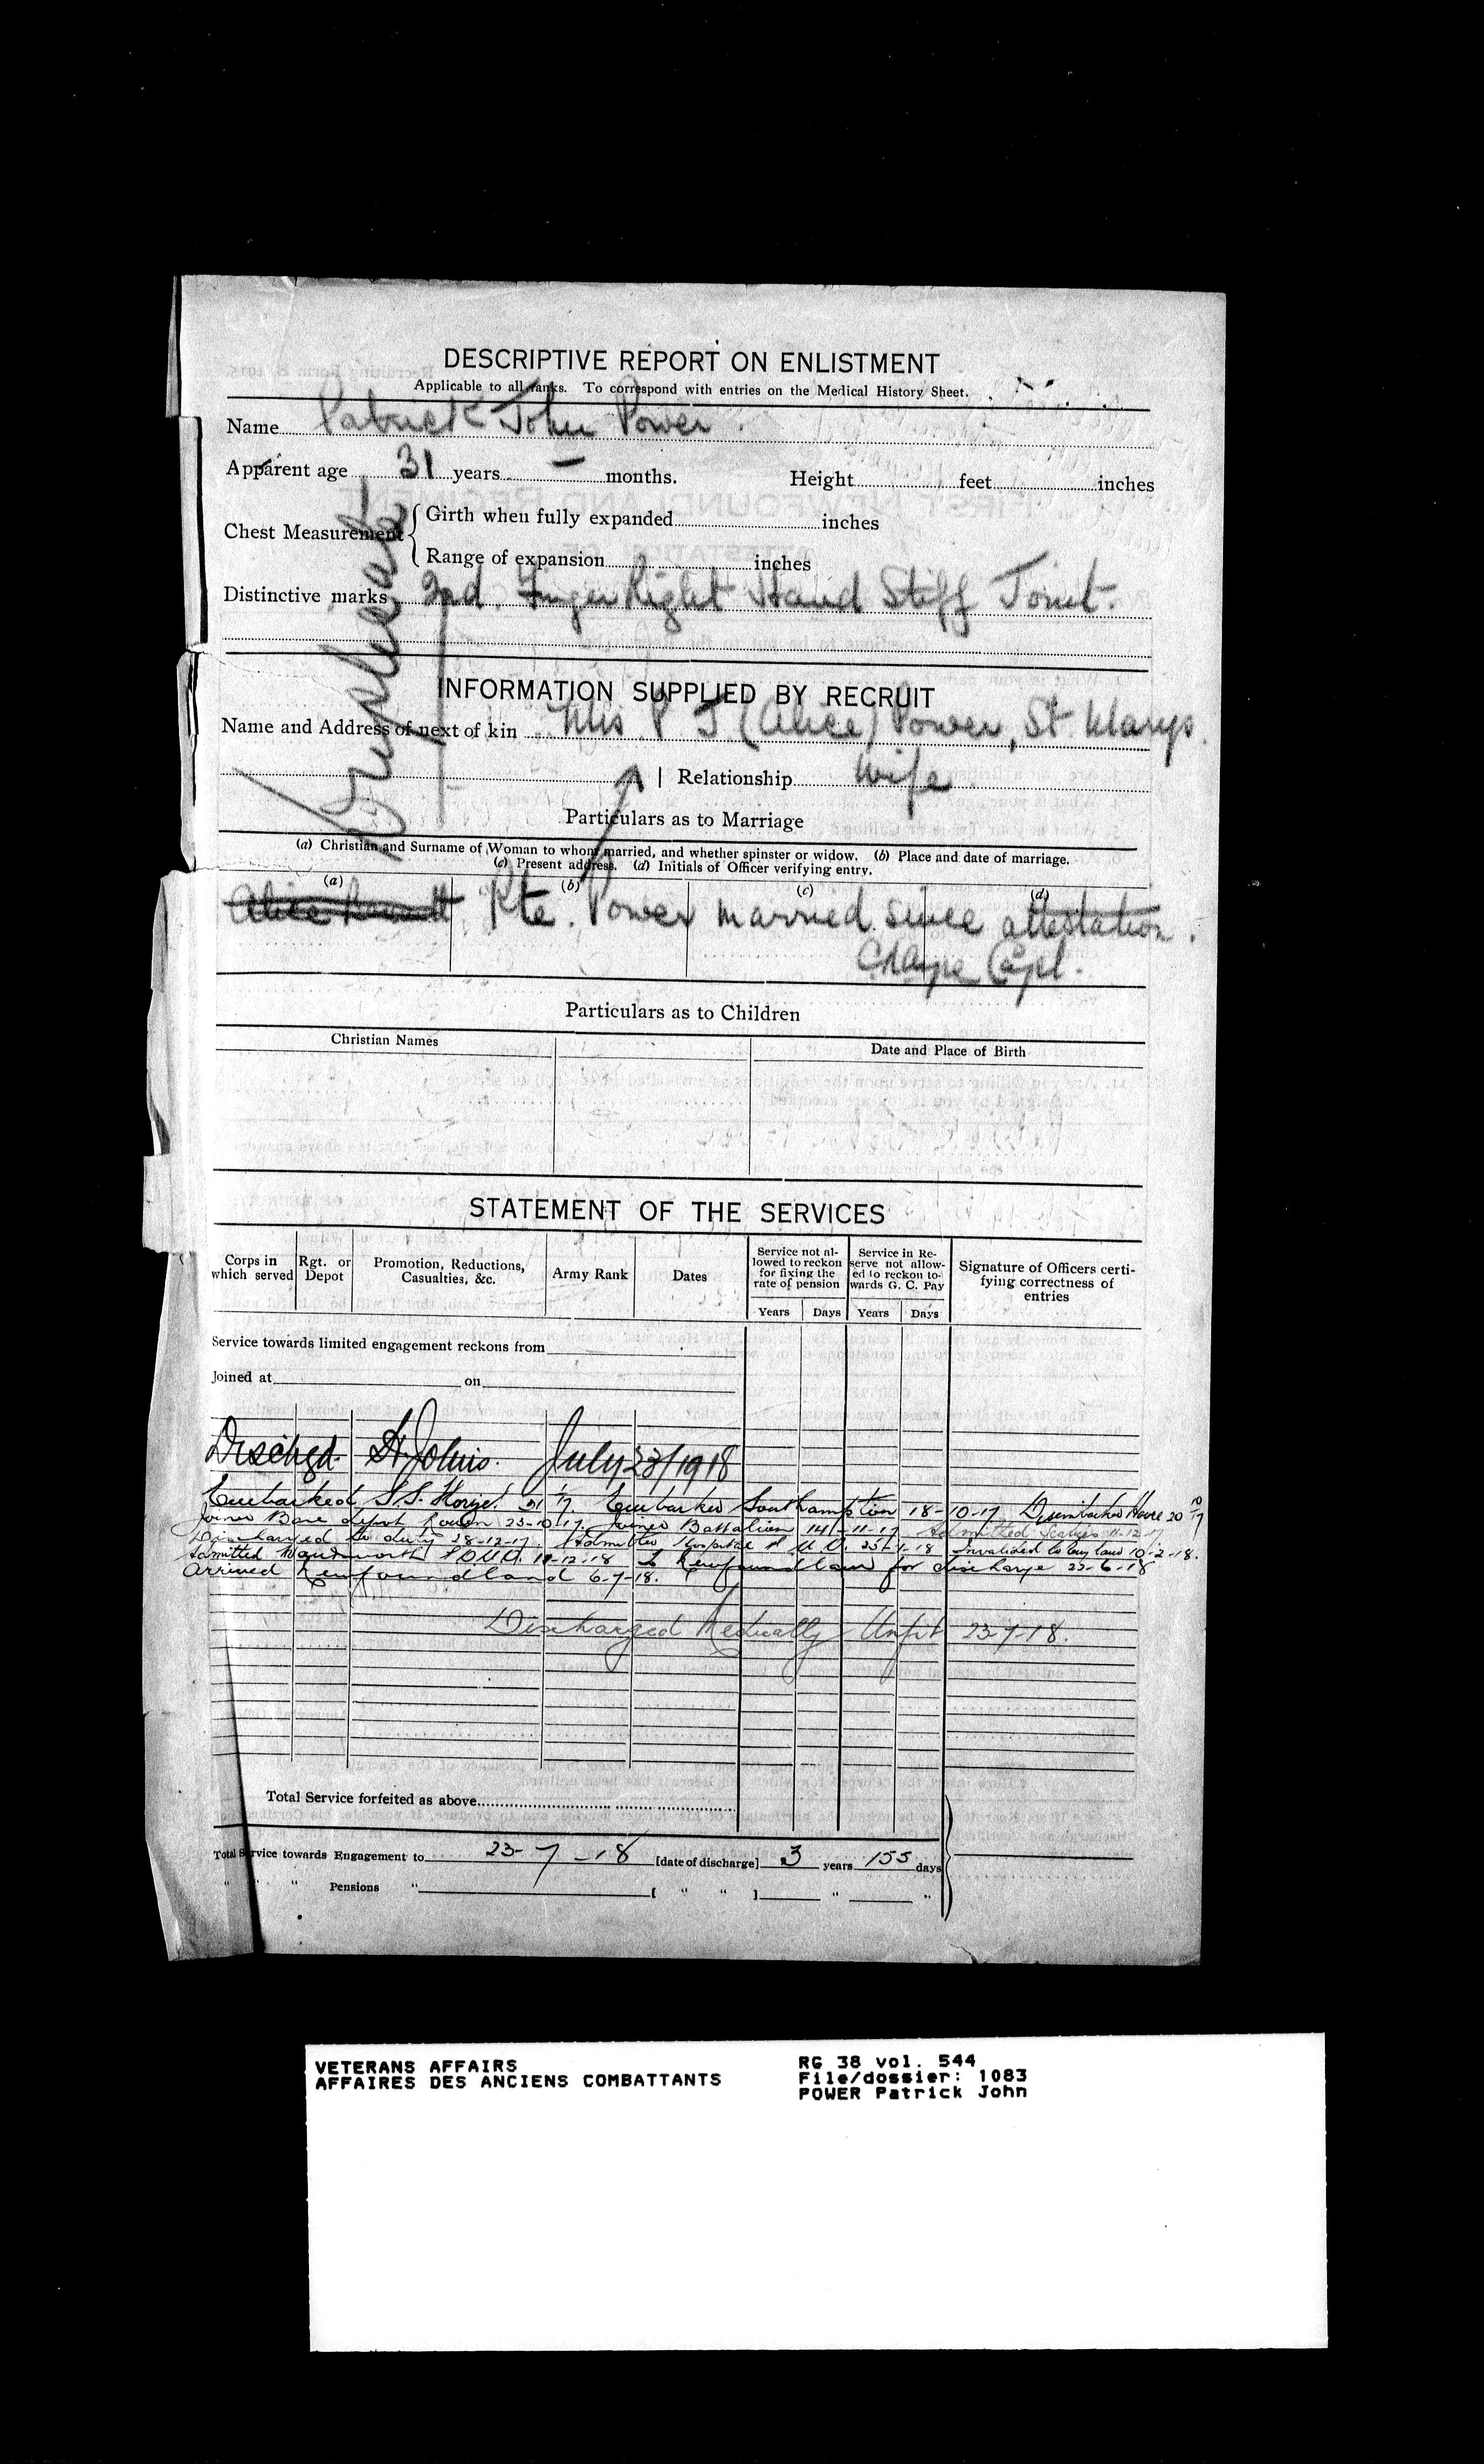 DESCRIPTIVE REPORT ON ENLISTMENT
Applicable to all ranks. To correspond with entries on the Medical History Sheet.
Name Patrick John Power
Apparent age 31 years — months. Height feet inches
Chest Measurement { Girth when fully expanded inches
Range of expansion inches
Distinctive marks 2nd. Finger Right Hand Stiff Joint.
INFORMATION SUPPLIED BY RECRUIT
Name and Address of next of kin Mrs P J (Alice) Power, St. Marys.
| Relationship Wife
Particulars as to Marriage
(a) Christian and Surname of Woman to whom married, and whether spinster or widow. (b) Place and date of marriage.
(c) Present address. (d) Initials of Officer verifying entry.
(a) (b) (c) (d)
Alice Pte. Power married since attestation.
Capt.
Particulars as to Children
Christian Names Date and Place of Birth
STATEMENT OF THE SERVICES
Corps in which served Rgt. or Depot Promotion, Reductions, Casualties, &c. Army Rank Dates Service not allowed to reckon for fixing the rate of pension Service in Reserve not allowed to reckon towards G. C. Pay Signature of Officers certifying correctness of entries
Years Days Years Days
Service towards limited engagement reckons from
Joined at on
Dischgd. St. Johns. July 23/1918
Embarked S.S. Florizel 31 1/17 Embarked Southampton 18-10-17 Disembarked Havre 20 10/17
Joined Base depot Rouen 23-10-17. Joined Battalion 14-11-17 Admitted Scabies 11-12-17
Discharged to duty 28-12-17. Admitted Hospital 25-1-18 Invalided to England 10-2-18.
Admitted Wandsworth 10-12-18 To Newfoundland for discharge 22-6-18
Arrived Newfoundland 6-7-18.
Discharged Medically Unfit 23-7-18.
Total Service forfeited as above
Total Service towards Engagement to 23-7-18 [date of discharge] 3 years 155 days
" " " Pensions " [ " " ] " "
VETERANS AFFAIRS RG 38 vol. 544
AFFAIRES DES ANCIENS COMBATTANTS File/dossier: 1083
POWER Patrick John